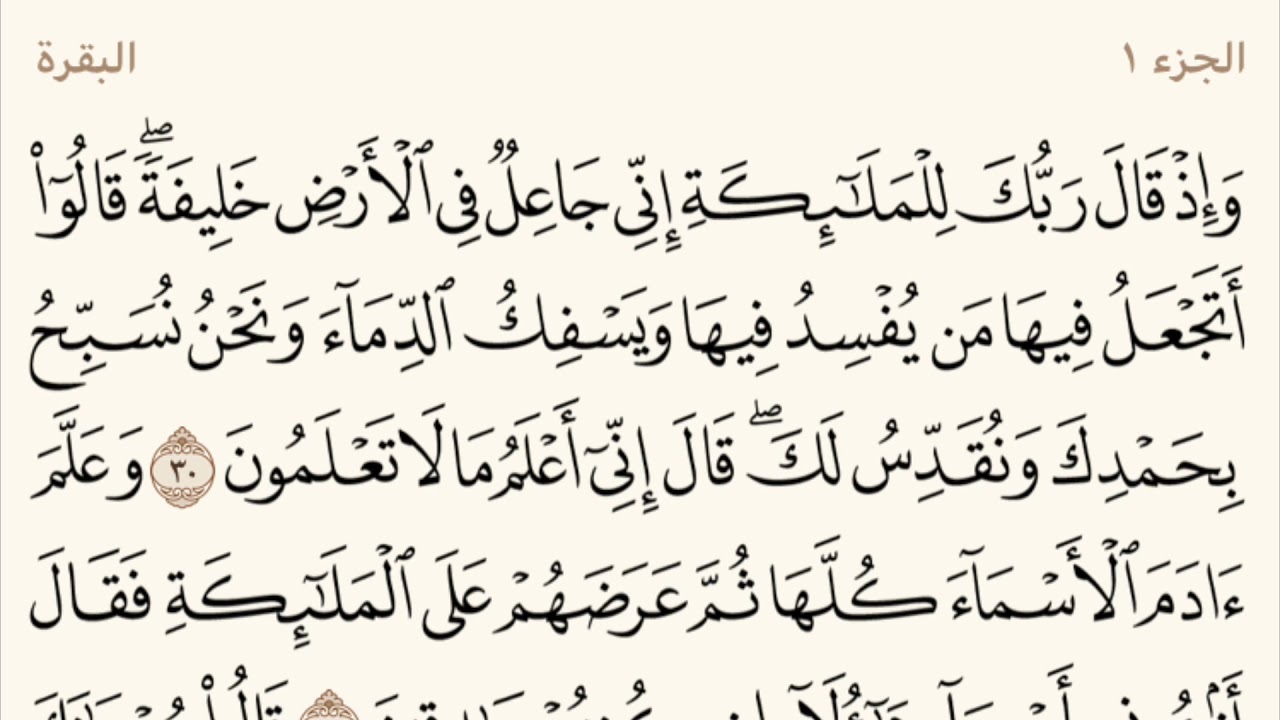 الجزء ١
البقرة
وَإِذْ قَالَ رَبُّكَ لِلْمَلَـٰٓئِكَةِ إِنِّى جَاعِلٌ فِى ٱلْأَرْضِ خَلِيفَةً ۖ قَالُوٓا۟
أَتَجْعَلُ فِيهَا مَن يُفْسِدُ فِيهَا وَيَسْفِكُ ٱلدِّمَآءَ وَنَحْنُ نُسَبِّحُ
بِحَمْدِكَ وَنُقَدِّسُ لَكَ ۖ قَالَ إِنِّىٓ أَعْلَمُ مَا لَا تَعْلَمُونَ ٣٠ وَعَلَّمَ
ءَادَمَ ٱلْأَسْمَآءَ كُلَّهَا ثُمَّ عَرَضَهُمْ عَلَى ٱلْمَلَـٰٓئِكَةِ فَقَالَ